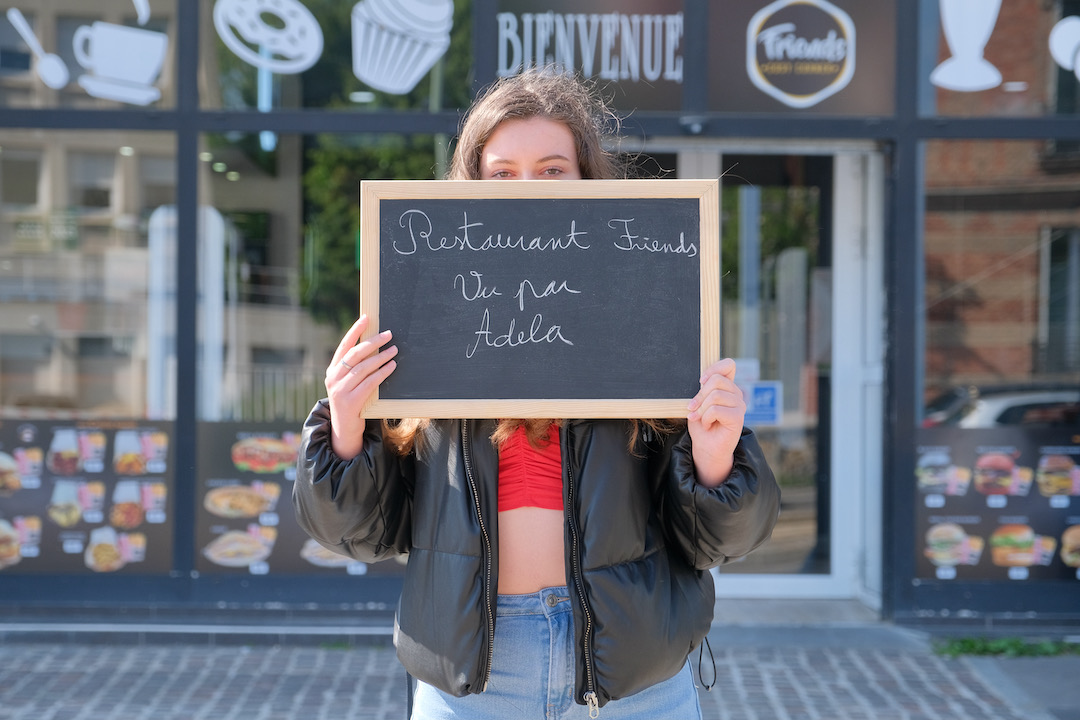 BIENVENUE
Friends
Restaurant Friends
Vu par
Adela